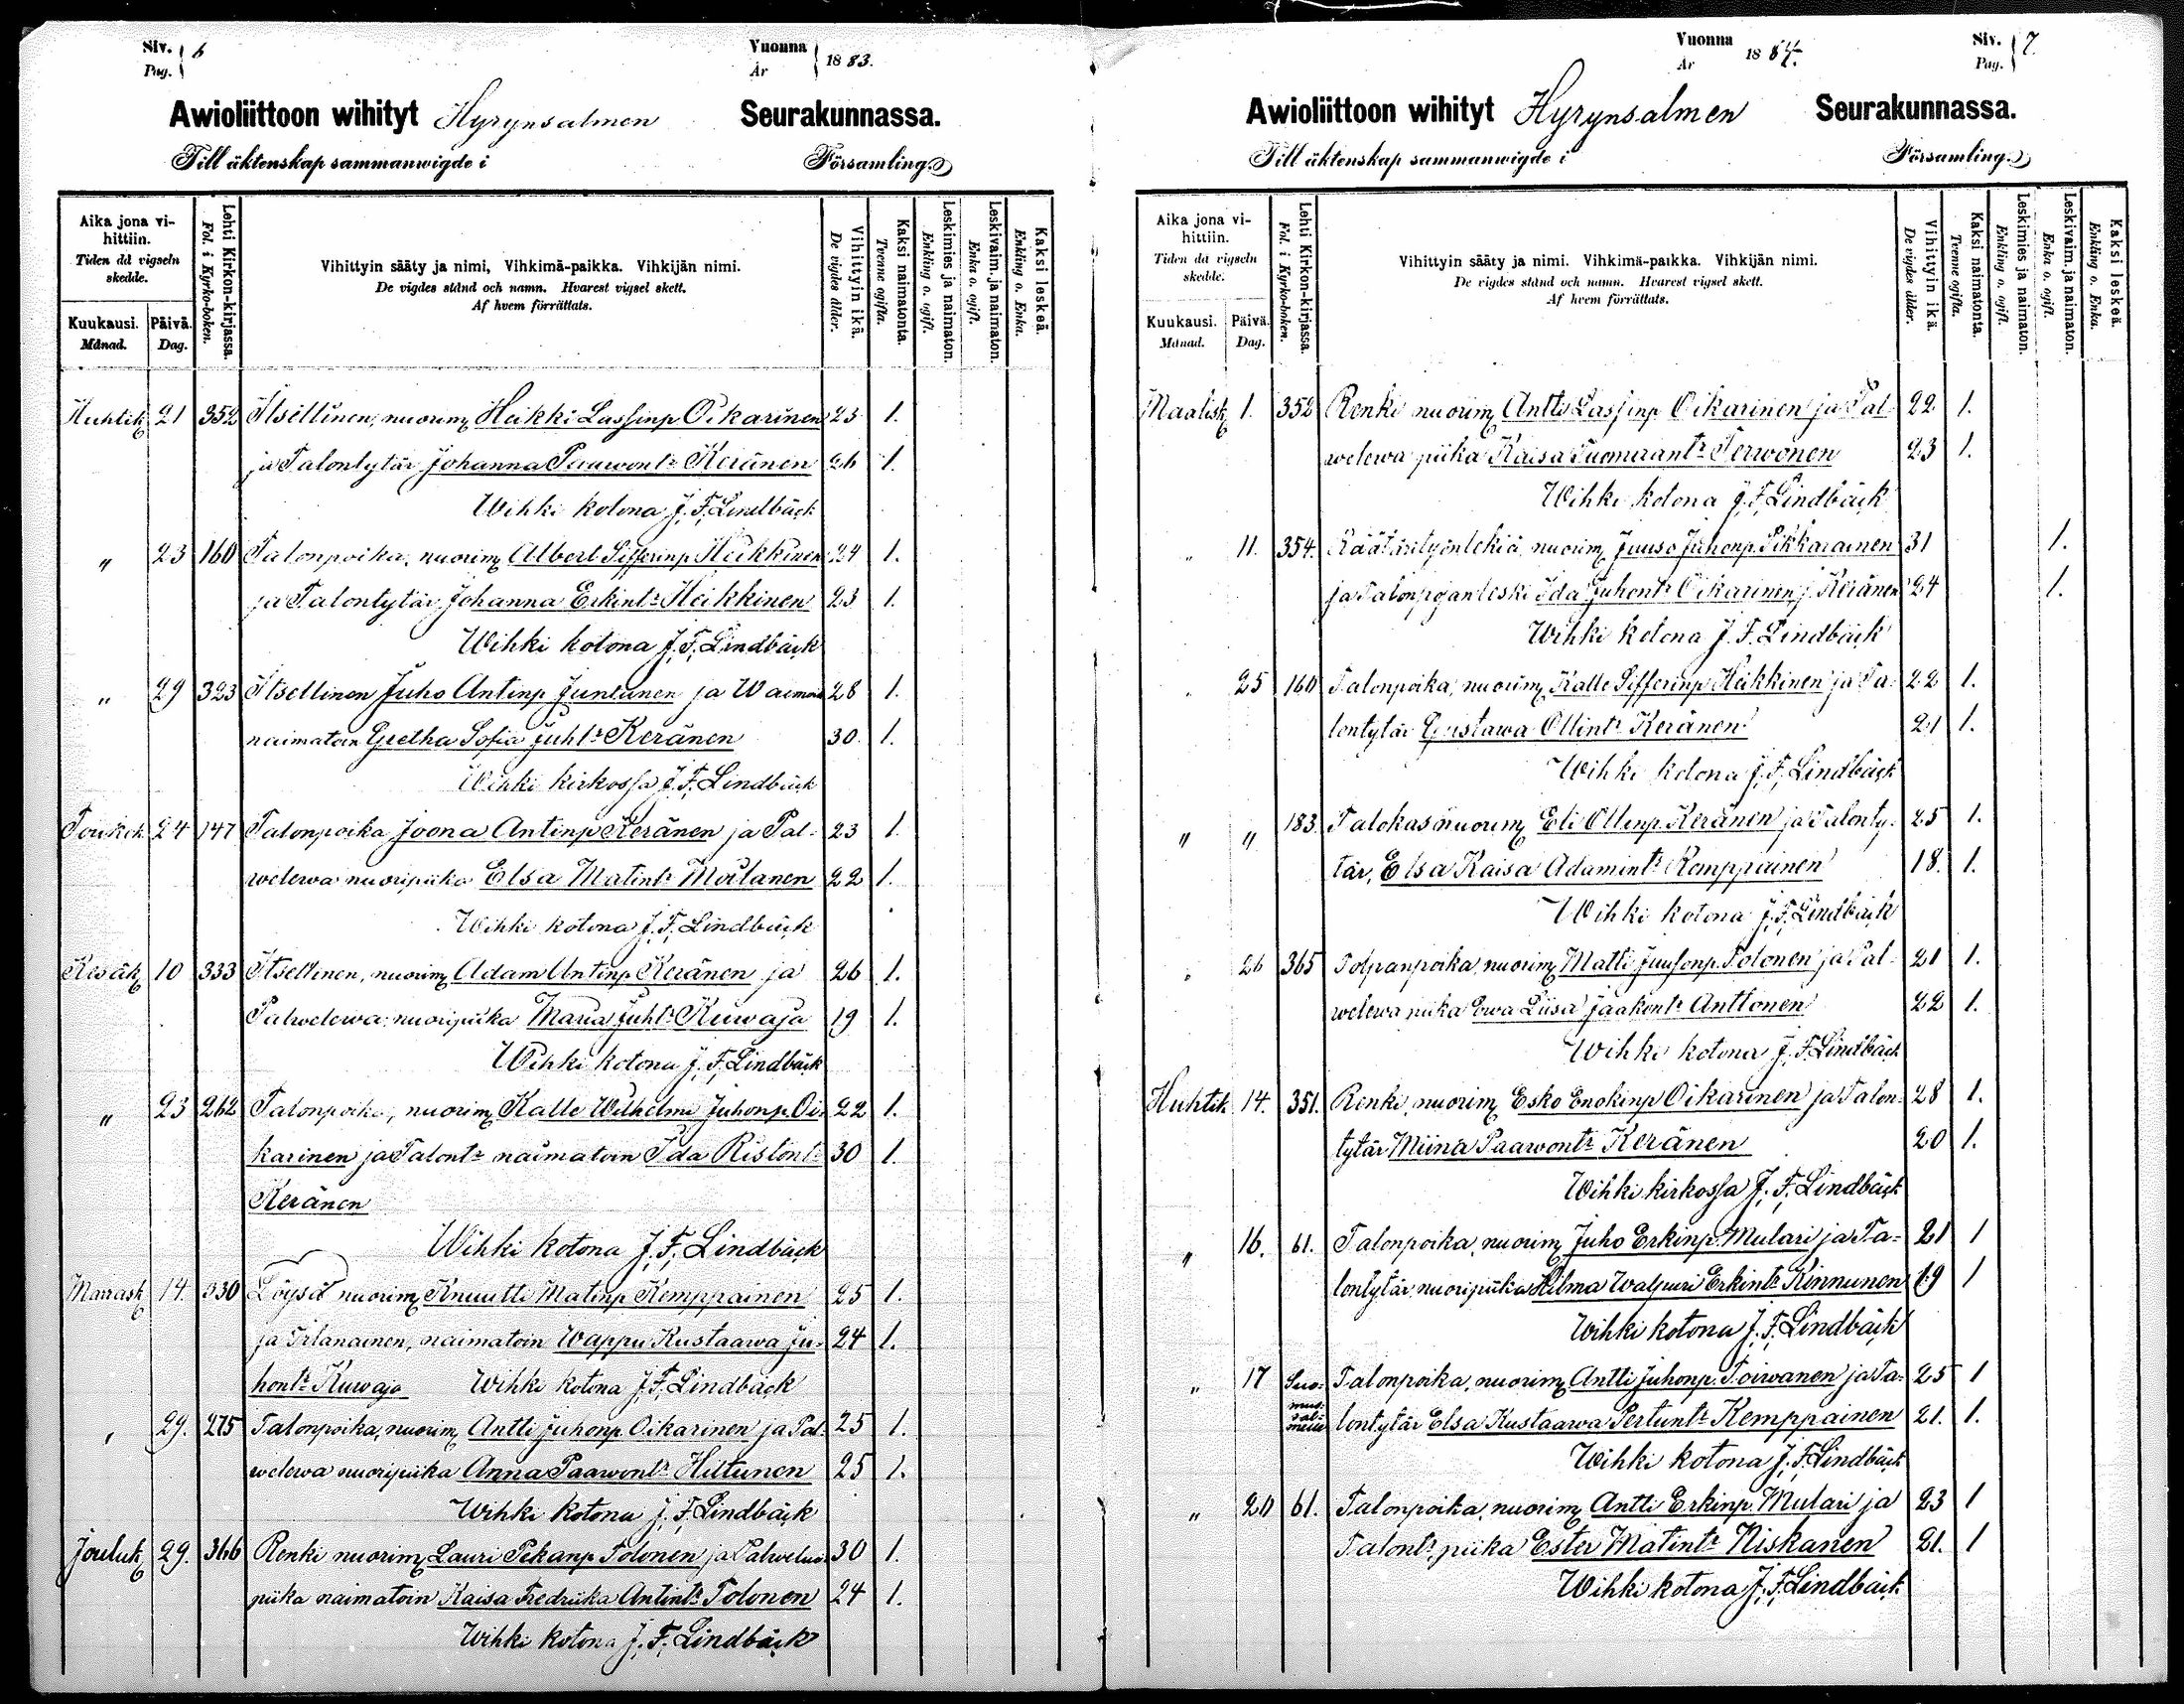 Siv. 6
Pag.
Vuonna 1883.
År
Awioliittoon wihityt Hyrynsalmen Seurakunnassa.
Till äktenskap sammanwigde i Församling.
Aika jona vihittiin.
Tiden då vigseln skedde.
Kuukausi. Månad.
Päivä. Dag.
Lehti Kirkon-kirjassa.
Fol. i Kyrko-boken.
Vihittyin sääty ja nimi, Vihkimä-paikka. Vihkijän nimi.
De vigdes stånd och namn. Hvarest vigsel skett.
Af hvem förrättats.
Vihittyin ikä.
De vigdes ålder.
Kaksi naimatonta.
Tvenne ogifta.
Leskimies ja naimaton.
Enkling o. ogift.
Leskivaim. ja naimaton.
Enka o. ogift.
Kaksi leskeä.
Enkling o. Enka.
Huhtik 21 352 Itsellinen, nuorim Heikki Lassinp Oikarinen 23 1.
ja Talontytär Johanna Paawontr Keränen 26 1.
Wihki kotona J. F. Lindbäck
„ 23 160 Talonpoika, nuorim Albert Sifferinp Heikkinen 24 1.
ja Talontytär Johanna Erkintr Heikkinen 23 1.
Wihki kotona J. F. Lindbäck
„ 29 323 Itsellinen Juho Antinp Juntunen ja Waimon 28 1.
naimatoin Gretha Sofia Juhtr Keränen 30. 1.
Wihki kirkossa J. F. Lindbäck
Toukok. 24 147 Talonpoika Joona Antinp Keränen ja Pal- 23 1.
welewa nuoripiika Elsa Matintr Moilanen 22 1.
Wihki kotona J. F. Lindbäck
Kesäk 10 333 Itsellinen, nuorim Adam Antinp Keränen ja 26 1.
Palwelewa nuoripiika Maria Juhtr Kuwaja 19 1.
Wihki kotona J. F. Lindbäck
„ 23 262 Talonpoika, nuorim Kalle Wilhelmi Juhonp. Oi- 22 1.
karinen ja Talontr naimatoin Ida Ristontr 30 1.
Keränen
Wihki kotona J. F. Lindbäck
Marrask 14. 330 Löysä nuorim Knuutti Matinp Kemppainen 25 1.
ja Irlanainen, naimatoin Wappu Kustaawa Ju- 24 1.
hontr Kuwaja Wihki kotona J. F. Lindbäck
„ 29. 275 Talonpoika, nuorim Antti Juhonp Oikarinen ja Pal- 25 1.
welewa nuoripiika Anna Paawontr Hiltunen 25 1.
Wihki kotona J. F. Lindbäck
Jouluk 29. 366 Renki nuorim Lauri Pekanp Tolonen ja Palwelus 30 1.
piika naimatoin Kaisa Fredriika Antintr Tolonen 24 1.
Wihki kotona J. F. Lindbäck
Vuonna 1884.
År
Siv. 7.
Pag.
Awioliittoon wihityt Hyrynsalmen Seurakunnassa.
Till äktenskap sammanwigde i Församling.
Aika jona vihittiin.
Tiden då vigseln skedde.
Kuukausi. Månad.
Päivä. Dag.
Lehti Kirkon-kirjassa.
Fol. i Kyrko-boken.
Vihittyin sääty ja nimi. Vihkimä-paikka. Vihkijän nimi.
De vigdes stånd och namn. Hvarest vigsel skett.
Af hvem förrättats.
Vihittyin ikä.
De vigdes ålder.
Kaksi naimatonta.
Tvenne ogifta.
Leskimies ja naimaton.
Enkling o. ogift.
Leskivaim. ja naimaton.
Enka o. ogift.
Kaksi leskeä.
Enkling o. Enka.
Maalisk 1. 352 Renki nuorim Antti Lassinp Oikarinen ja Pal- 22 1.
welewa piika Kaisa Tuomaantr Terwonen 23 1.
Wihki kotona J. F. Lindbäck
„ 11. 354. Räätärityöntekiä nuorim Juuso Juhonp Pikkarainen 31 1.
ja Talonpojanleski Ida Juhontr Oikarinen, j. Keränen 24 1.
Wihki kotona J. F. Lindbäck
„ 25 160 Talonpoika, nuorim Kalle Sifferinp Heikkinen ja Ta- 22 1.
lontytär Gustawa Ollintr Keränen 21 1.
Wihki kotona J. F. Lindbäck
„ „ 183. Talokas nuorim Eli Ollinp. Keränen ja Talonty- 25 1.
tär, Elsa Kaisa Adamintr Kemppainen 18. 1.
Wihki kotona J. F. Lindbäck
„ 26 365 Torpanpoika, nuorim Matti Juusonp. Tolonen ja Pal- 21 1.
welewa piika Ewa Liisa Jaakontr Anttonen 22 1.
Wihki kotona J. F. Lindbäck
Huhtik. 14. 351. Renki, nuorim Esko Enokinp Oikarinen ja Talon- 28 1.
tytär Miina Paawontr Keränen 20 1.
Wihki kirkossa J. F. Lindbäck
„ 16. 61. Talonpoika, nuorim Juho Erkinp. Mulari ja Ta- 21 1
lontytär, nuoripiika Hilma Walpuri Erkintr Kinnunen 19 1
Wihki kotona J. F. Lindbäck
„ 17 Suo- Talonpoika, nuorim Antti Juhonp. Toiwanen ja Ta- 25 1
mussalmelta lontytär Elsa Kustaawa Pertuntr Kemppainen 21. 1.
Wihki kotona J. F. Lindbäck
„ 20 61. Talonpoika, nuorim Antti Erkinp. Mulari ja 23 1
Talontr, piika Ester Matintr Niskanen 21. 1
Wihki kotona J. F. Lindbäck